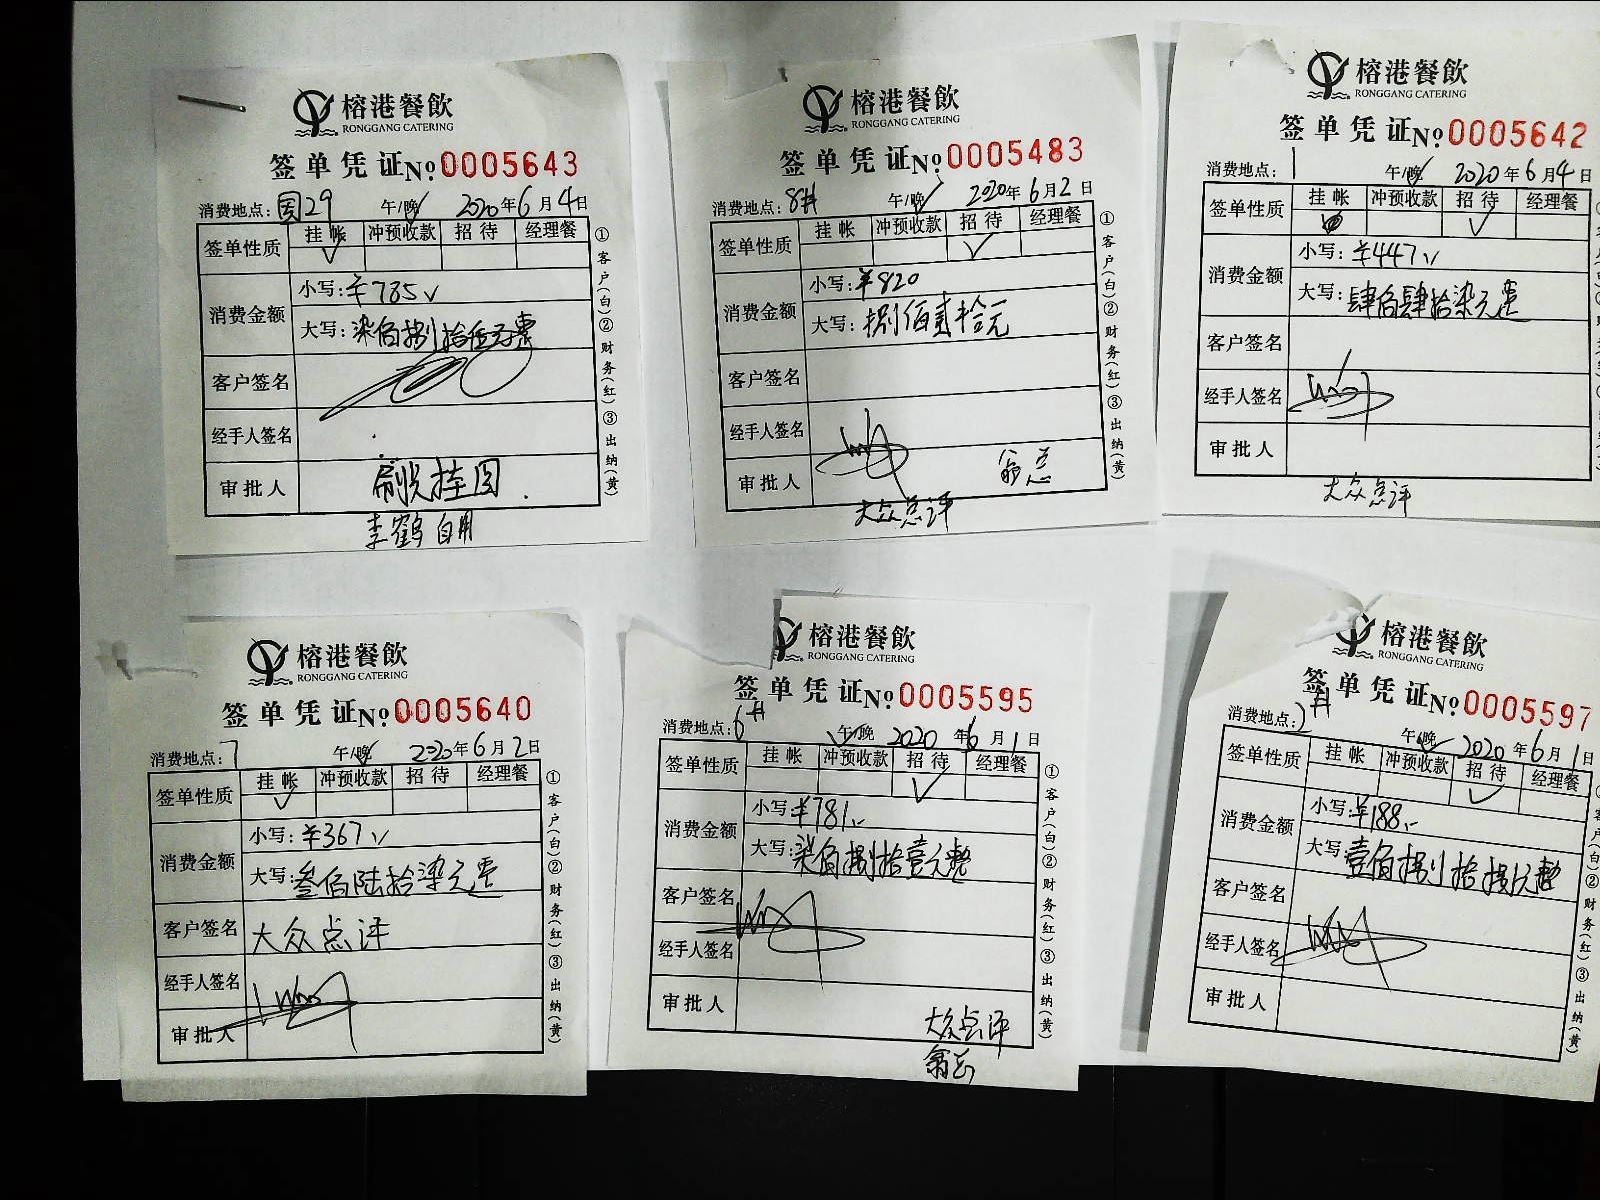 榕港餐飲
RONGGANG CATERING
签单凭证 No 0005643
消费地点: 国29 午/晚 2020年6月4日
签单性质 挂帐 冲预收款 招待 经理餐
消费金额
小写: ¥785
大写: 柒佰捌拾伍元整
客户签名
经手人签名
审批人
李鹤自用
①客户(白)②财务(红)③出纳(黄)
榕港餐飲
RONGGANG CATERING
签单凭证 No 0005483
消费地点: 8# 午/晚 2020年6月2日
签单性质 挂帐 冲预收款 招待 经理餐
消费金额
小写: ¥820
大写: 捌佰贰拾元
客户签名
经手人签名
审批人
大众点评
①客户(白)②财务(红)③出纳(黄)
榕港餐飲
RONGGANG CATERING
签单凭证 No 0005642
消费地点: 1 午/晚 2020年6月4日
签单性质 挂帐 冲预收款 招待 经理餐
消费金额
小写: ¥447
大写: 肆佰肆拾柒元整
客户签名
经手人签名
审批人
大众点评
榕港餐飲
RONGGANG CATERING
签单凭证 No 0005640
消费地点: 7 午/晚 2020年6月2日
签单性质 挂帐 冲预收款 招待 经理餐
消费金额
小写: ¥367
大写: 叁佰陆拾柒元整
客户签名 大众点评
经手人签名
审批人
①客户(白)②财务(红)③出纳(黄)
榕港餐飲
RONGGANG CATERING
签单凭证 No 0005595
消费地点: 6# 午/晚 2020年6月1日
签单性质 挂帐 冲预收款 招待 经理餐
消费金额
小写: ¥781
大写: 柒佰捌拾壹元整
客户签名
经手人签名
审批人
大众点评
①客户(白)②财务(红)③出纳(黄)
榕港餐飲
RONGGANG CATERING
签单凭证 No 0005597
消费地点: 2# 午/晚 2020年6月1日
签单性质 挂帐 冲预收款 招待 经理餐
消费金额
小写: ¥188
大写: 壹佰捌拾捌元整
客户签名
经手人签名
审批人
①客户(白)②财务(红)③出纳(黄)